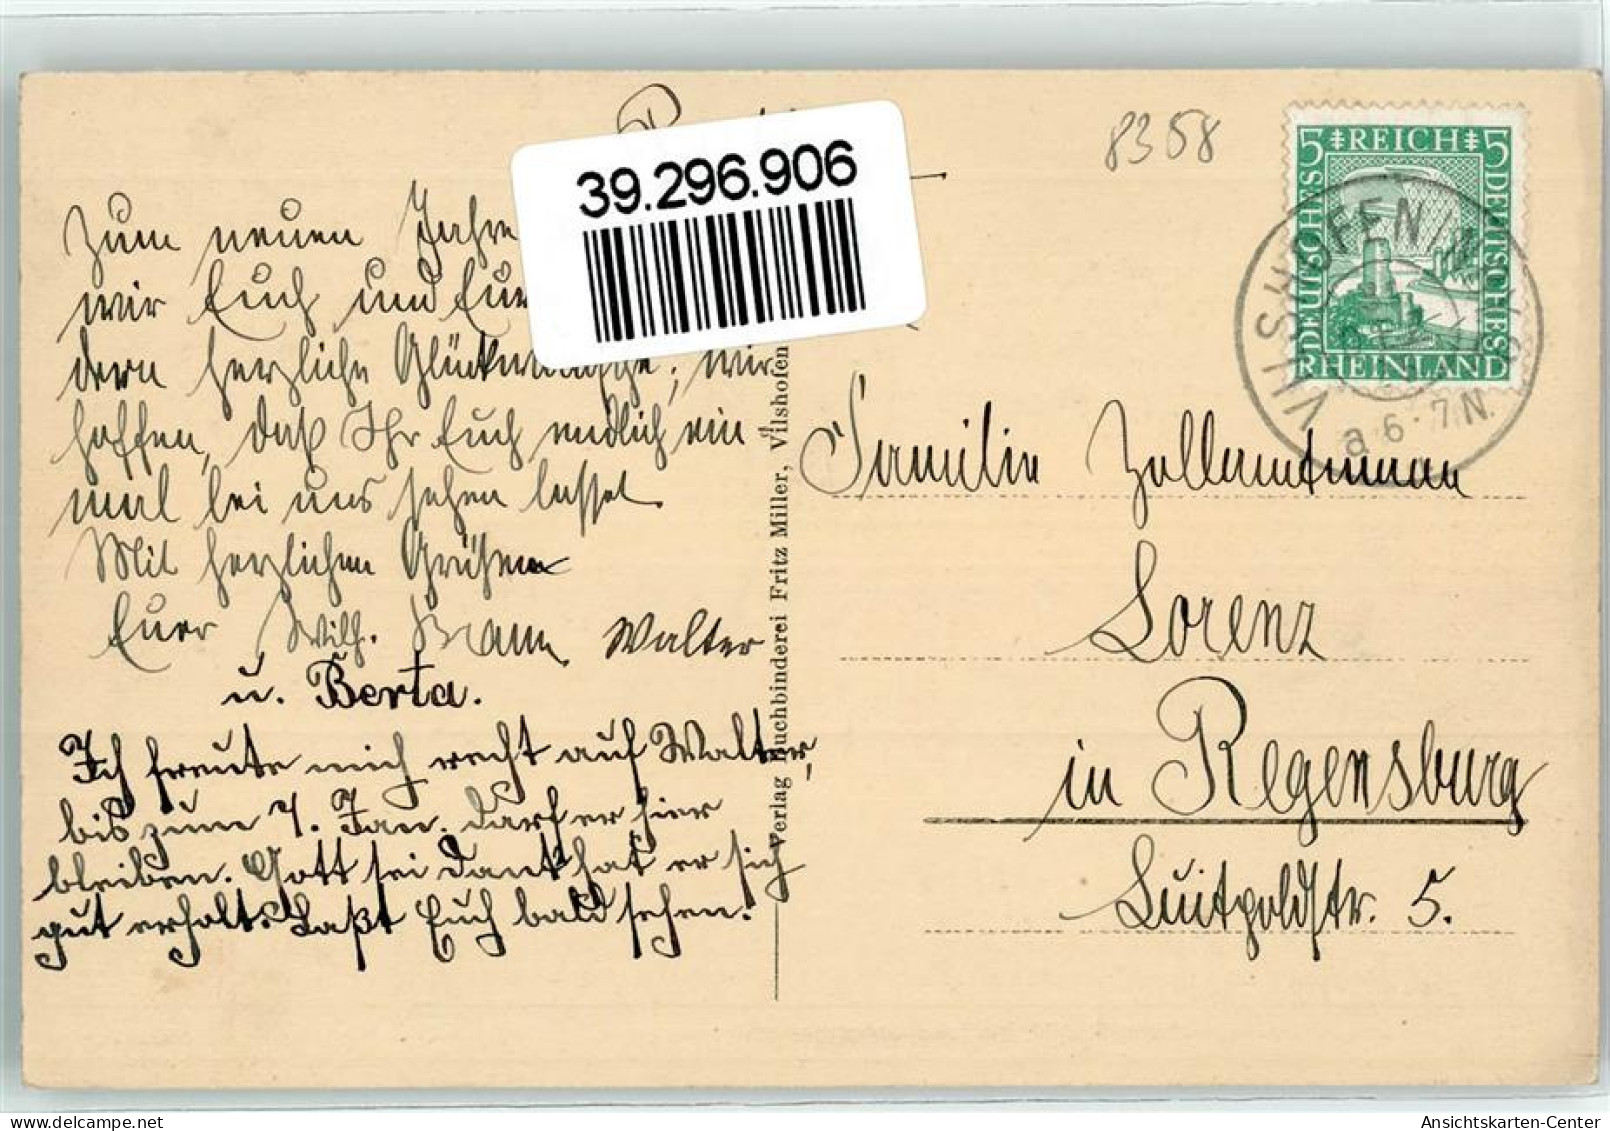 39.296.906
8358
Zum neuen Jahre
wir Euch und
dern herzliche Glückwünsche; wir
hoffen, daß Ihr Euch endlich ein
mal bei uns sehen lasset.
Mit herzlichen Grüßen
Euer Wilh. Walter
u. Berta.
Ich freute mich recht auf Walter,
bis zum 7. Jan. darf er hier
bleiben. Gott sei Dank hat er sich
gut erholt. Laßt Euch bald sehen.
Verlag Buchbinderei Fritz Miller, Vilshofen
5 REICH 5
DEUTSCHES
DEUTSCHES
RHEINLAND
VILSHOFEN
a 6-7 N.
Familie Zollamtmann
Lorenz
in Regensburg
Luitpoldstr. 5.
Ansichtskarten-Center